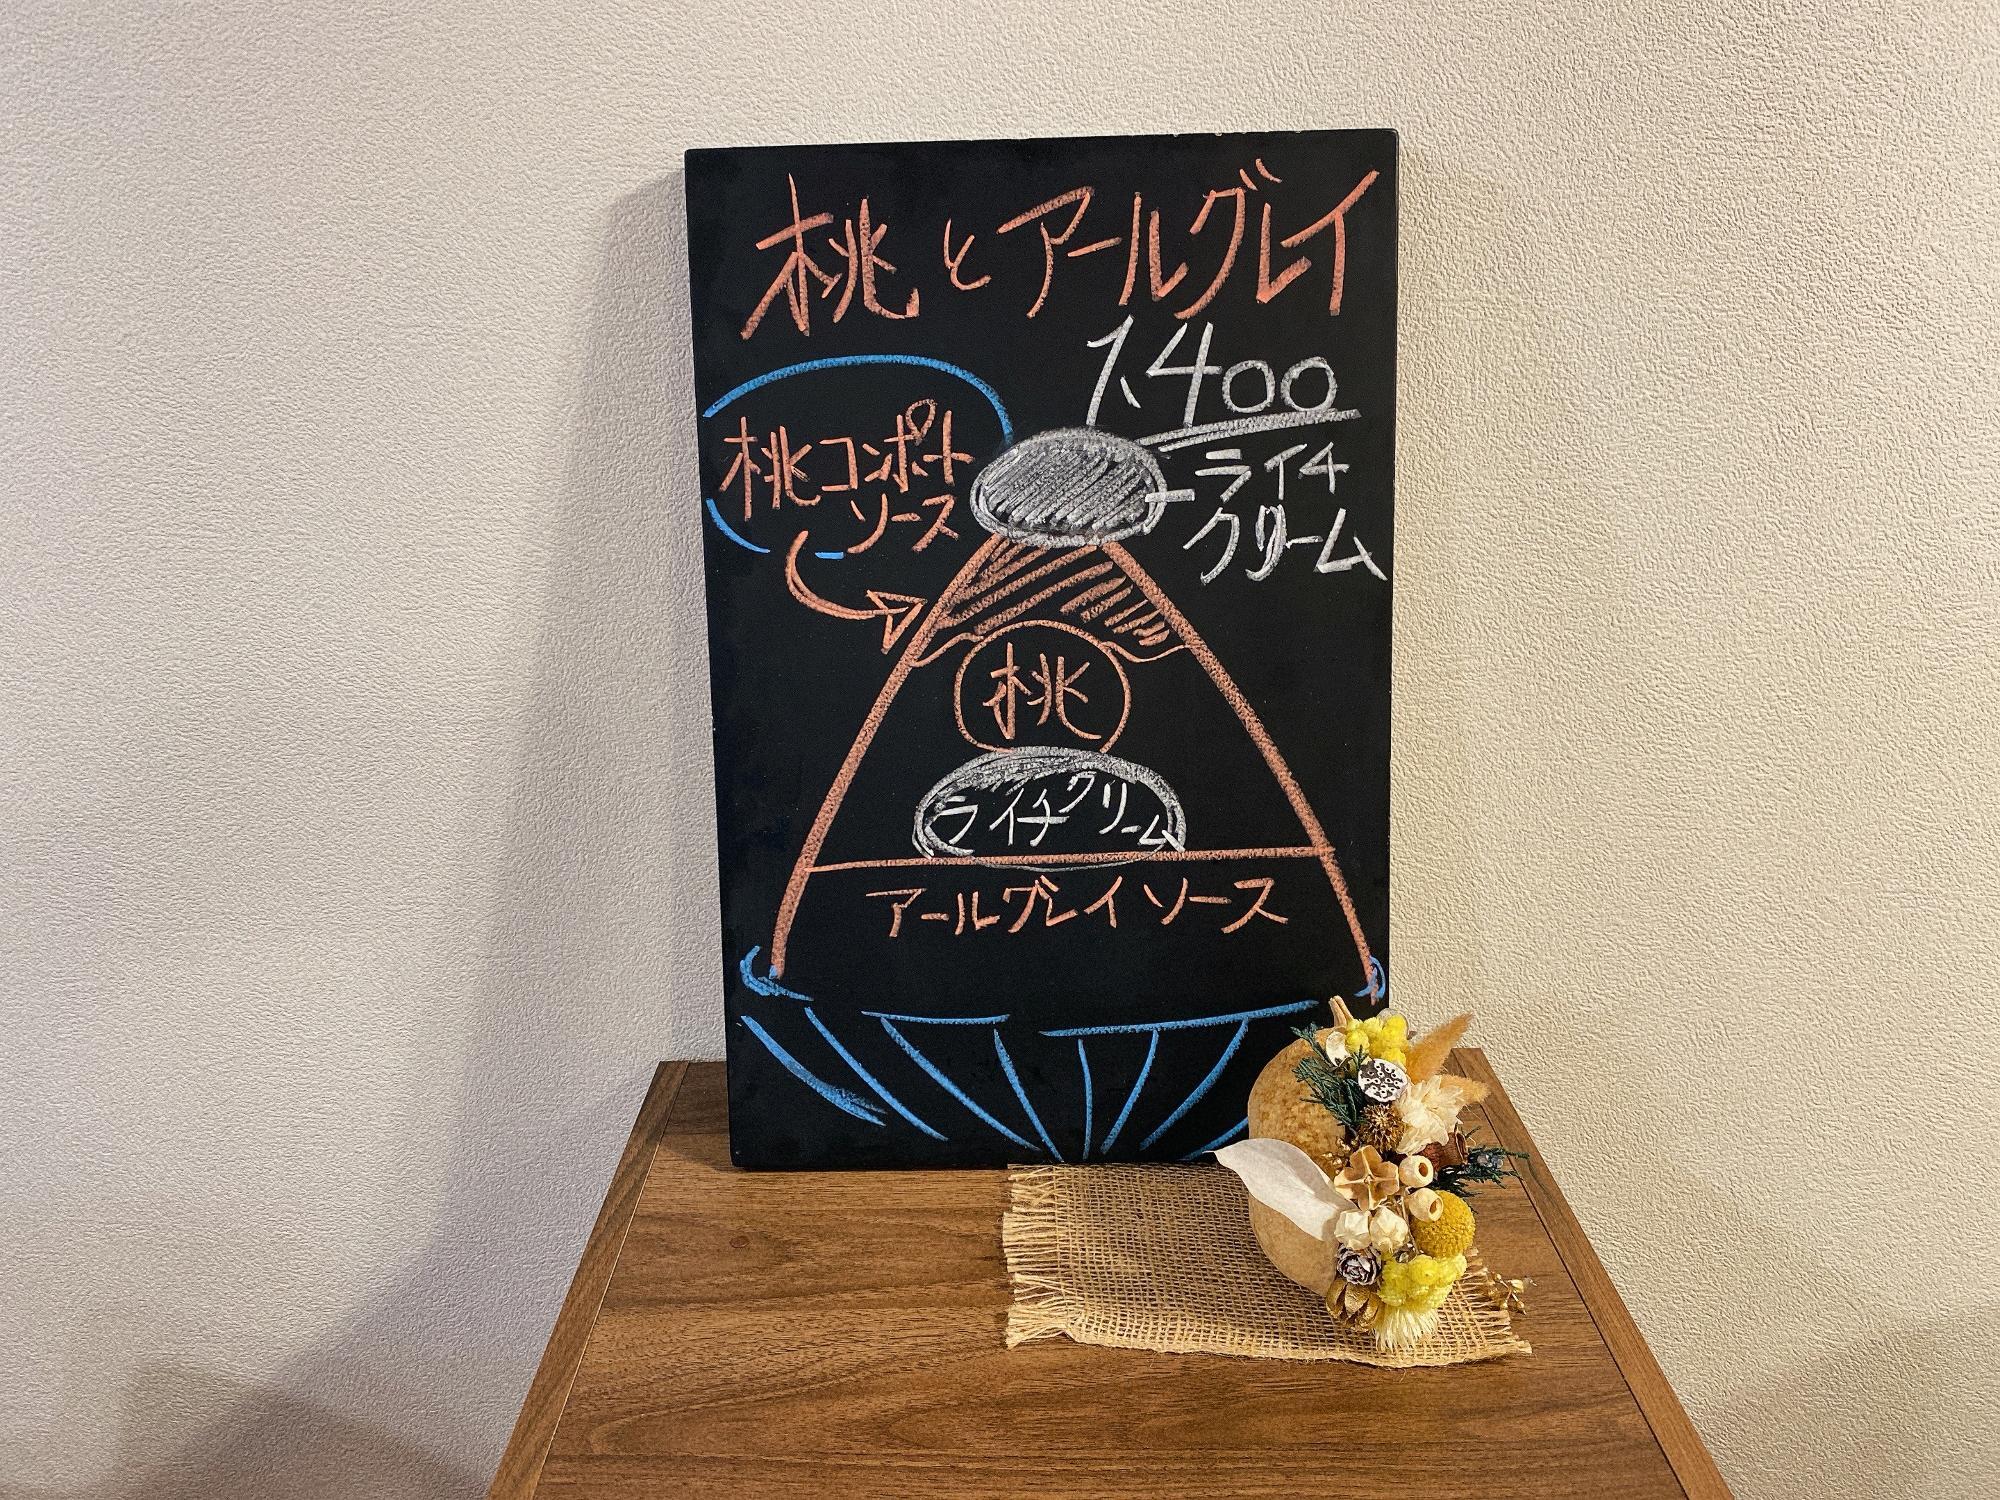 桃とアールグレイ
1,400
桃コンポート
ソース
ライチ
クリーム
桃
ライチクリーム
アールグレイソース